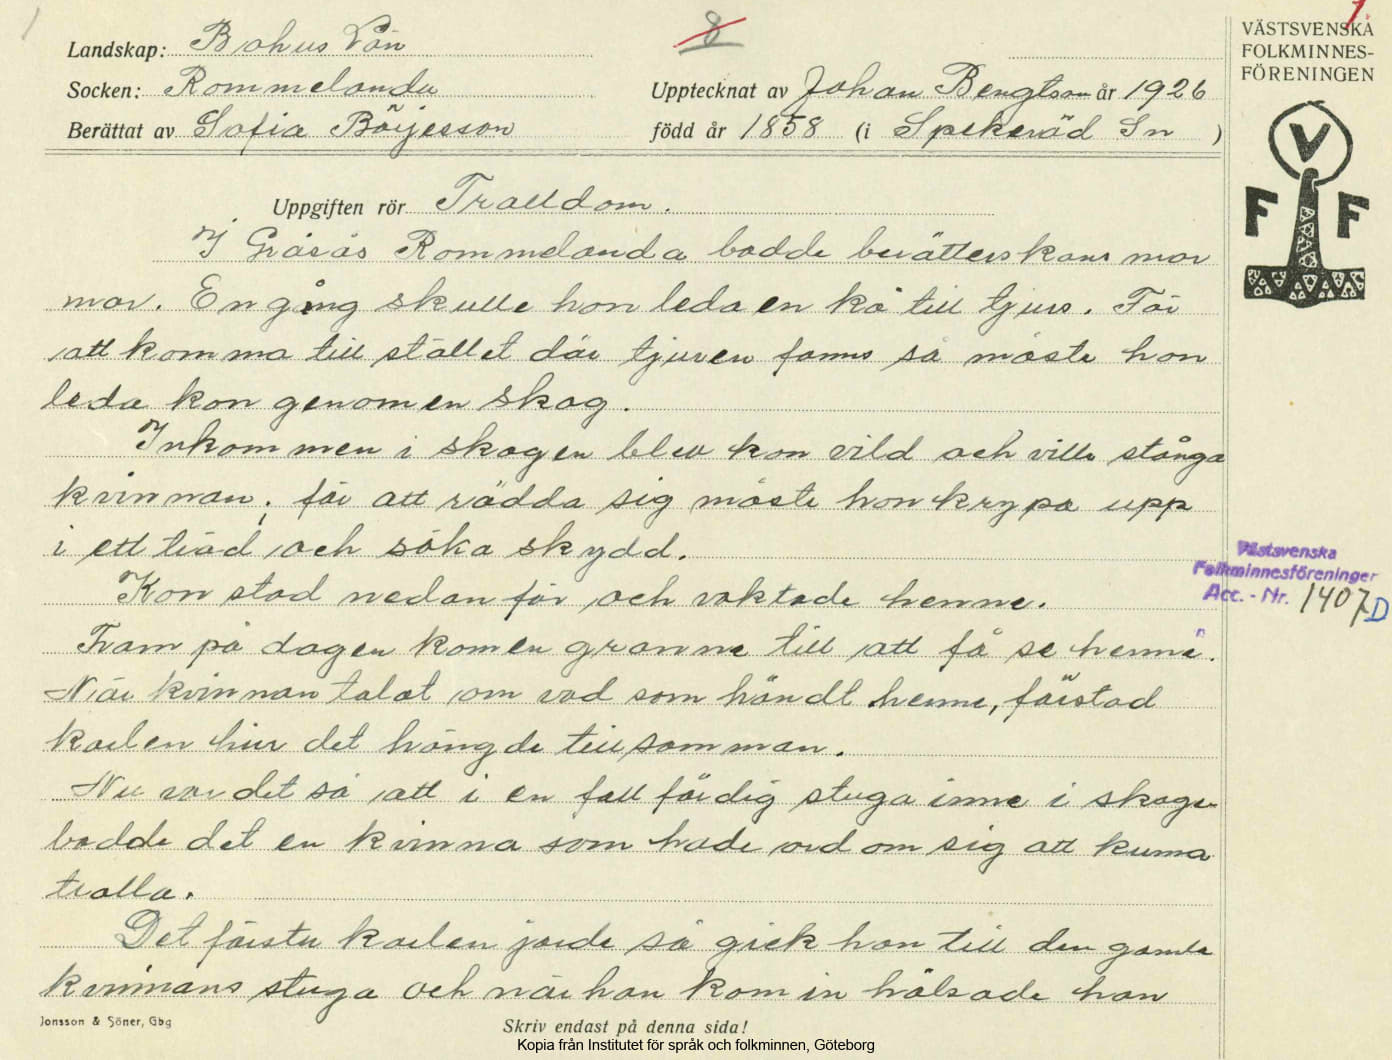 8
1
VÄSTSVENSKA
FOLKMINNES-
FÖRENINGEN
Landskap: Bohus Län
Socken: Rommelanda
Upptecknat av Johan Bengtson år 1926
Berättat av Sofia Börjesson
född år 1858 (i Spekeröd Sn )
V
F F
Uppgiften rör Trolldom.
I Gråsås Rommelanda bodde berätterskans mor
mor. En gång skulle hon leda en ko till tjurs. För
att komma till stället där tjuren fanns så måste hon
leda kon genom en skog.
Inkommen i skogen blev kon vild och ville stånga
kvinnan; för att rädda sig måste hon krypa upp
i ett träd och söka skydd.
Kon stod nedanför och vaktade henne.
Fram på dagen kom en granne till att få se henne.
När kvinnan talat om vad som händt henne, förstod
karlen hur det hängde tillsamman.
Nu var det så att i en fallfärdig stuga inne i skogen
bodde det en kvinna som hade ord om sig att kunna
trolla.
Det första karlen jorde så gick han till den gamla
kvinnans stuga och när han kom in hälsade han
Västsvenska
Folkminnesföreningen
Acc. - Nr. 1407 D
Jonsson & Söner, Gbg
Skriv endast på denna sida!
Kopia från Institutet för språk och folkminnen, Göteborg